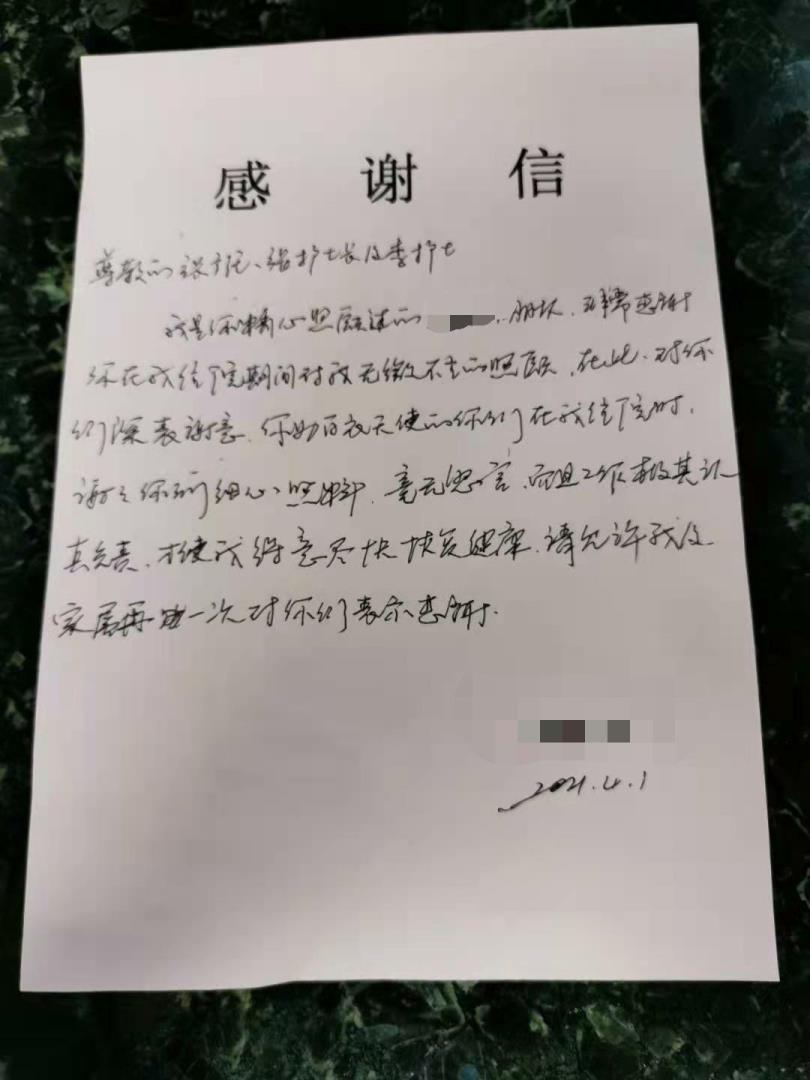 感谢信
尊敬的张主任、张护士长及李护士
我是你精心照顾过的 朋友,非常感谢
你在我住院期间对我无微不至的照顾,在此,对你
们深表谢意,你如白衣天使的你们在我住院时,
谢谢你们细心照料,毫无怨言,而且工作极其认
真负责,才使我得意尽快恢复健康,请允许我及
家属再一次对你们表示感谢.
2021.4.1